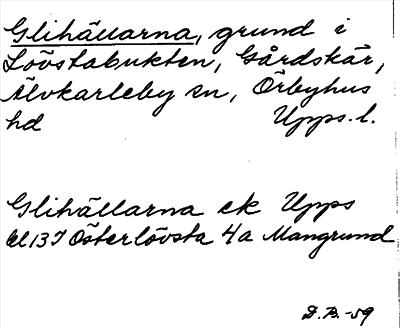 Glihällarna, grund i
Lövstabukten, Gårdskär,
Älvkarleby sn, Örbyhus
hd Upps. l.
Glihällarna ek Upps
Bl 13 I Österlövsta 4a Mangrund
D. B. -59